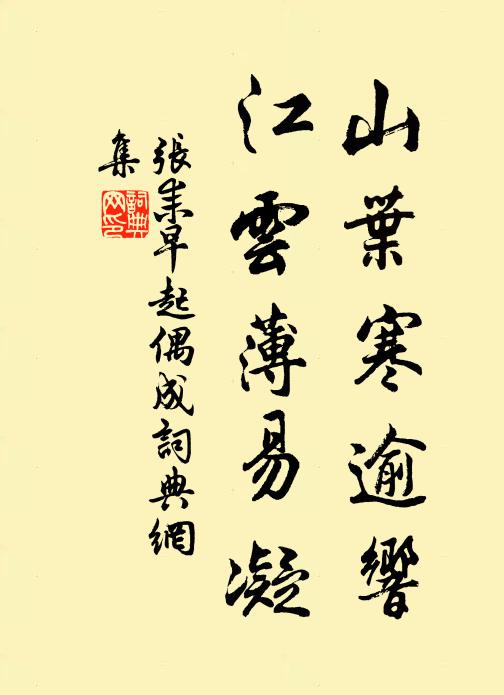 山葉寒逾響
江雲薄易凝
張耒早起偶成詞典網
集
詞典
網印